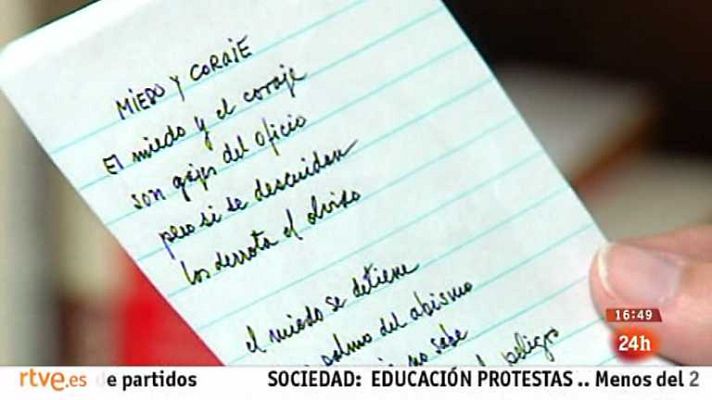 MIEDO Y CORAJE
El miedo y el coraje
son gajes del oficio
pero si se descuidan
los derrota el olvido
el miedo se detiene
palmo del abismo
no sabe
el peligro
16:49
24h
rtve.es de partidos
SOCIEDAD: EDUCACIÓN PROTESTAS .. Menos del 2